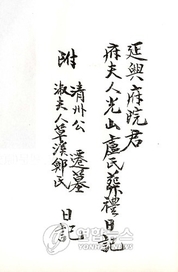 延興府院君
府夫人光山盧氏葬禮日記
附 清州公 遷墓
淑夫人草溪鄭氏 日記
연합뉴스